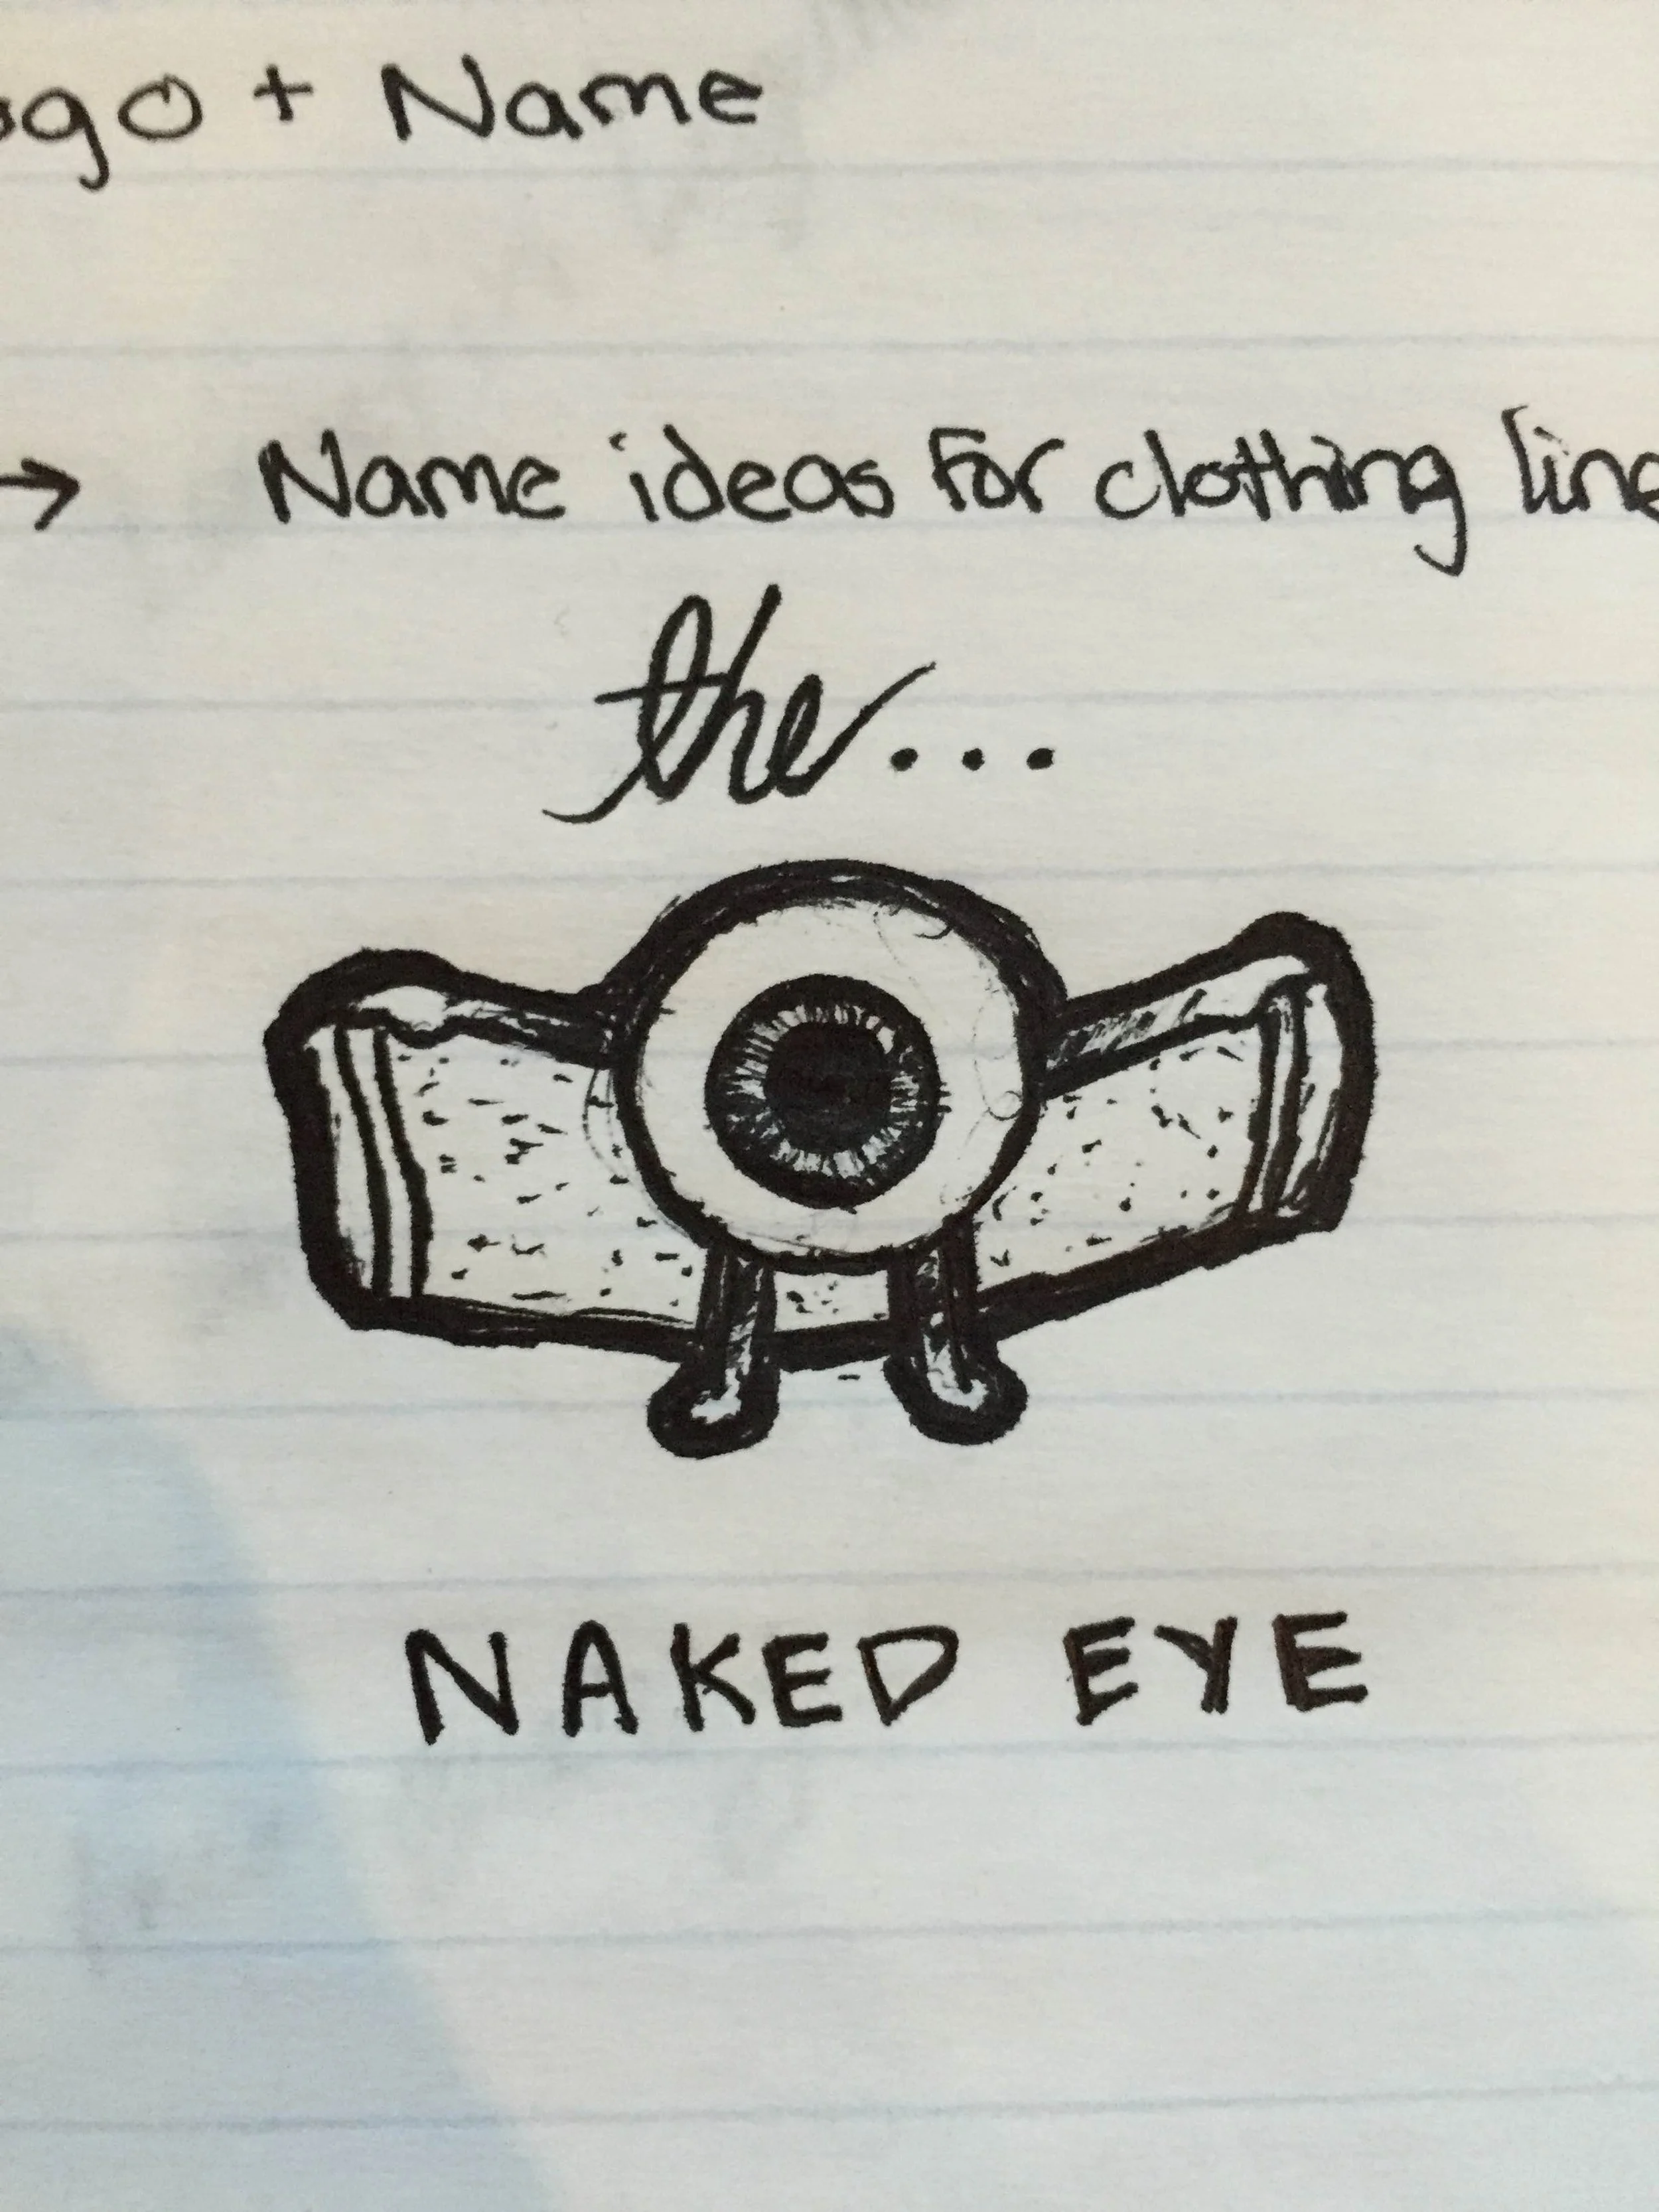 ogo + Name
→ Name ideas for clothing line
the...
NAKED EYE